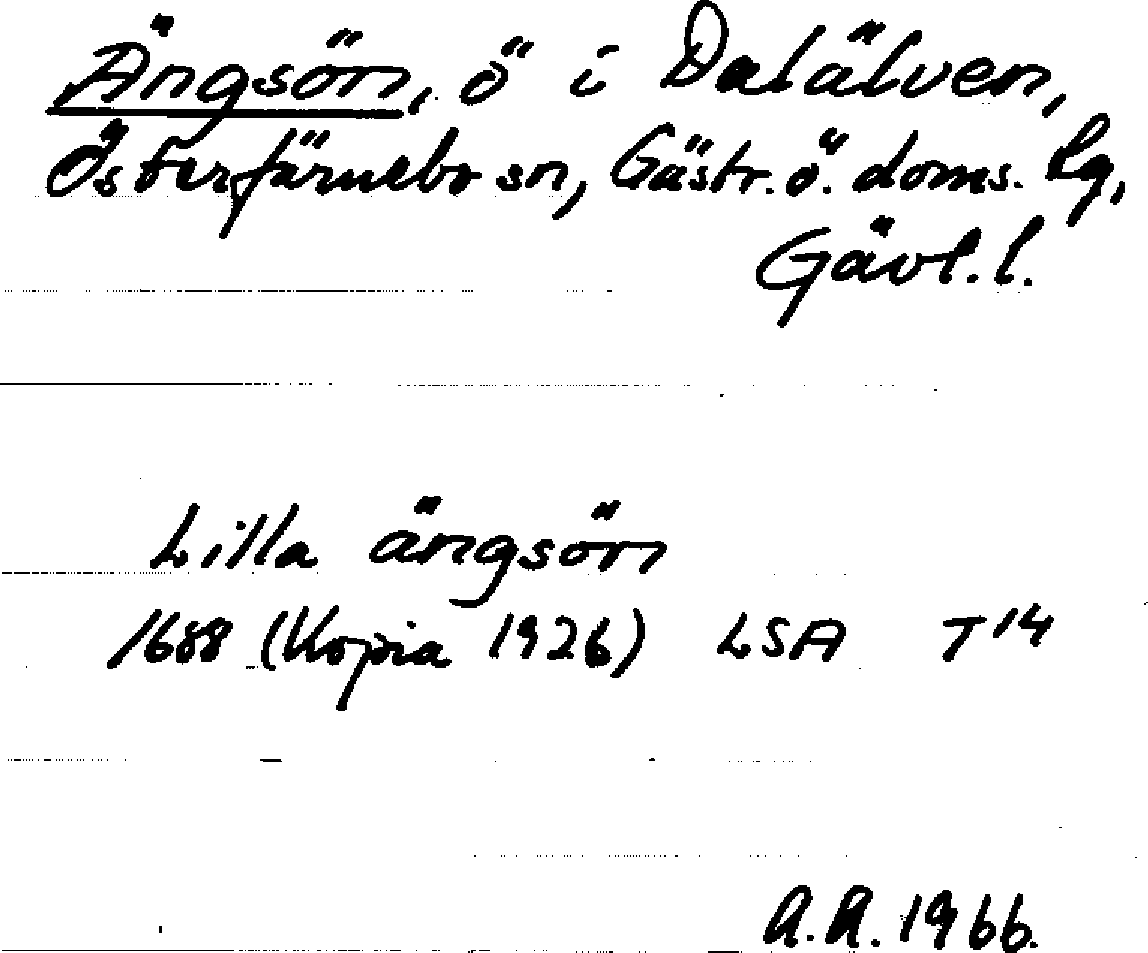 Ängsön, ö i Dalälven,
Österfärnebo sn, Gästr. ö. doms. lg,
Gävl. l.
Lilla ängsön
1688 (Kopia 1926) LSA T14
A.A. 1966.